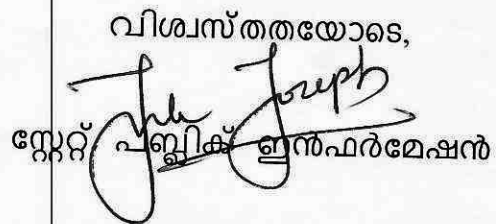 വിശ്വസ്തതയോടെ,
Joseph
സ്റ്റേറ്റ് പബ്ലിക് ഇൻഫർമേഷൻ